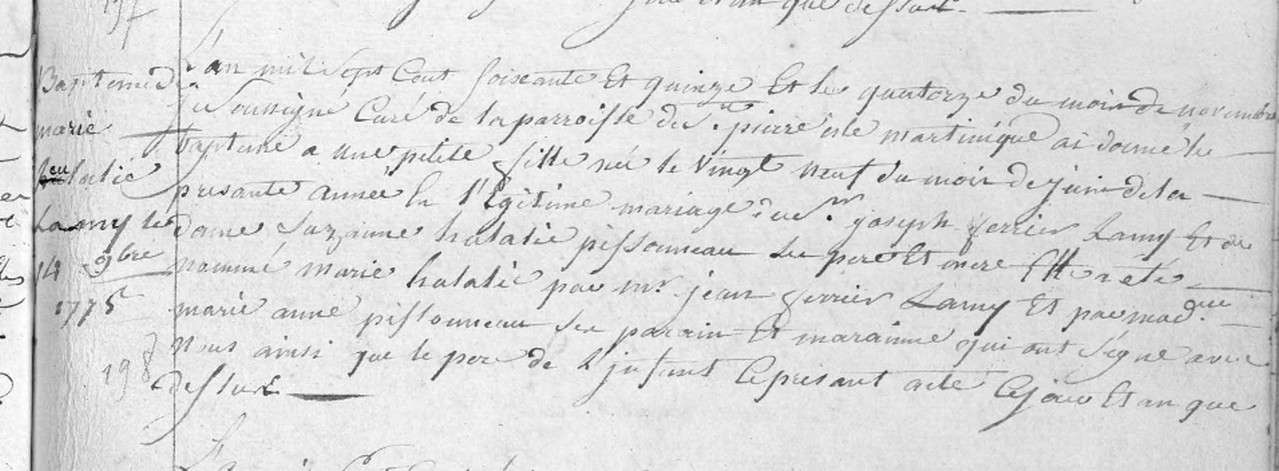 que dessus.
Bapteme de
marie
eulalie
Lamy le
14 9bre
1775
198
L'an mil sept Cent soixante Et quinze Et le quatorze du mois de novembre
je soussigné Curé de la parroisse du St pierre isle martinique ai donné le
Bapteme a une petite fille née le vingt neuf du mois de juin de la
presante année du l'Egitime mariage du Sr joseph ferrier Lamy Et de
dame Suzanne Eulalie pissonneau ses pere Et mere Elle a été
nommé marie Eulalie par mr jean ferrier Lamy Et par madme
marie anne pissonneau ses parain Et maraine qui ont signé avec
nous ainsi que le pere de L'jnfant Le présant acte Ce jour Et an que
dessus